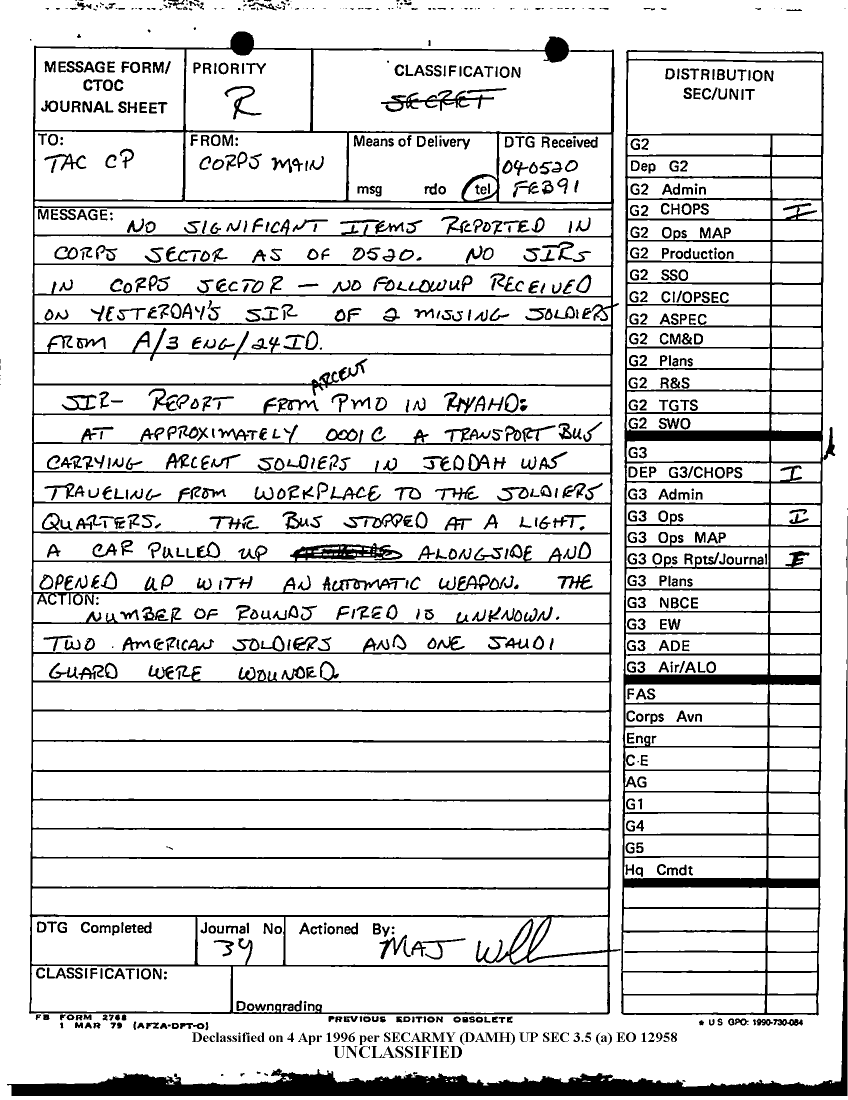 MESSAGE FORM/
CTOC
JOURNAL SHEET
PRIORITY
R
CLASSIFICATION
SECRET
TO:
TAC CP
FROM:
CORPS MAIN
Means of Delivery
msg rdo tel
DTG Received
040520
FEB91
MESSAGE:
NO SIGNIFICANT ITEMS REPORTED IN
CORPS SECTOR AS OF 0520. NO SIRs
IN CORPS SECTOR — NO FOLLOWUP RECEIVED
ON YESTERDAY'S SIR OF 2 MISSING SOLDIERS
FROM A/3 ENG/24ID.
ARCENT
SIR- REPORT FROM PMO IN RIYAHD:
AT APPROXIMATELY 0001C A TRANSPORT BUS
CARRYING ARCENT SOLDIERS IN JEDDAH WAS
TRAVELING FROM WORKPLACE TO THE SOLDIERS
QUARTERS. THE BUS STOPPED AT A LIGHT.
A CAR PULLED UP ALONGSIDE AND
OPENED UP WITH AN AUTOMATIC WEAPON. THE
ACTION:
NUMBER OF ROUNDS FIRED IS UNKNOWN.
TWO AMERICAN SOLDIERS AND ONE SAUDI
GUARD WERE WOUNDED.
DTG Completed
Journal No.
34
Actioned By:
MAJ
CLASSIFICATION:
Downgrading
FB FORM 2768
1 MAR 79 (AFZA-DPT-O)
PREVIOUS EDITION OBSOLETE
DISTRIBUTION
SEC/UNIT
G2
Dep G2
G2 Admin
G2 CHOPS I
G2 Ops MAP
G2 Production
G2 SSO
G2 CI/OPSEC
G2 ASPEC
G2 CM&D
G2 Plans
G2 R&S
G2 TGTS
G2 SWO
G3
DEP G3/CHOPS I
G3 Admin
G3 Ops I
G3 Ops MAP
G3 Ops Rpts/Journal E
G3 Plans
G3 NBCE
G3 EW
G3 ADE
G3 Air/ALO
FAS
Corps Avn
Engr
C-E
AG
G1
G4
G5
Hq Cmdt
* U S GPO: 1990-730-084
Declassified on 4 Apr 1996 per SECARMY (DAMH) UP SEC 3.5 (a) EO 12958
UNCLASSIFIED